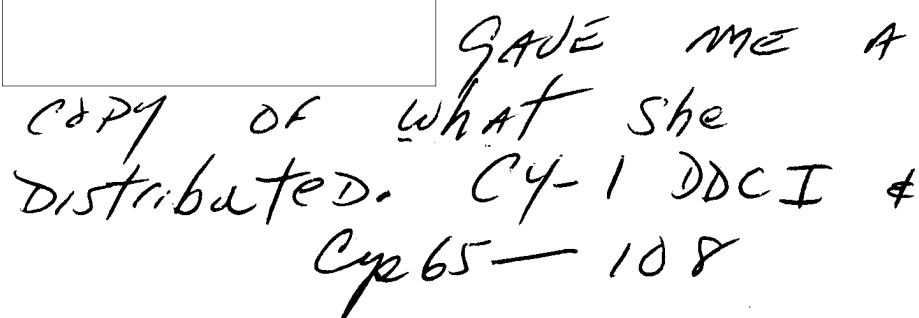 GAVE ME A
COPY OF what She
Distributed. CY-1 DDCI &
Cys 65 — 108